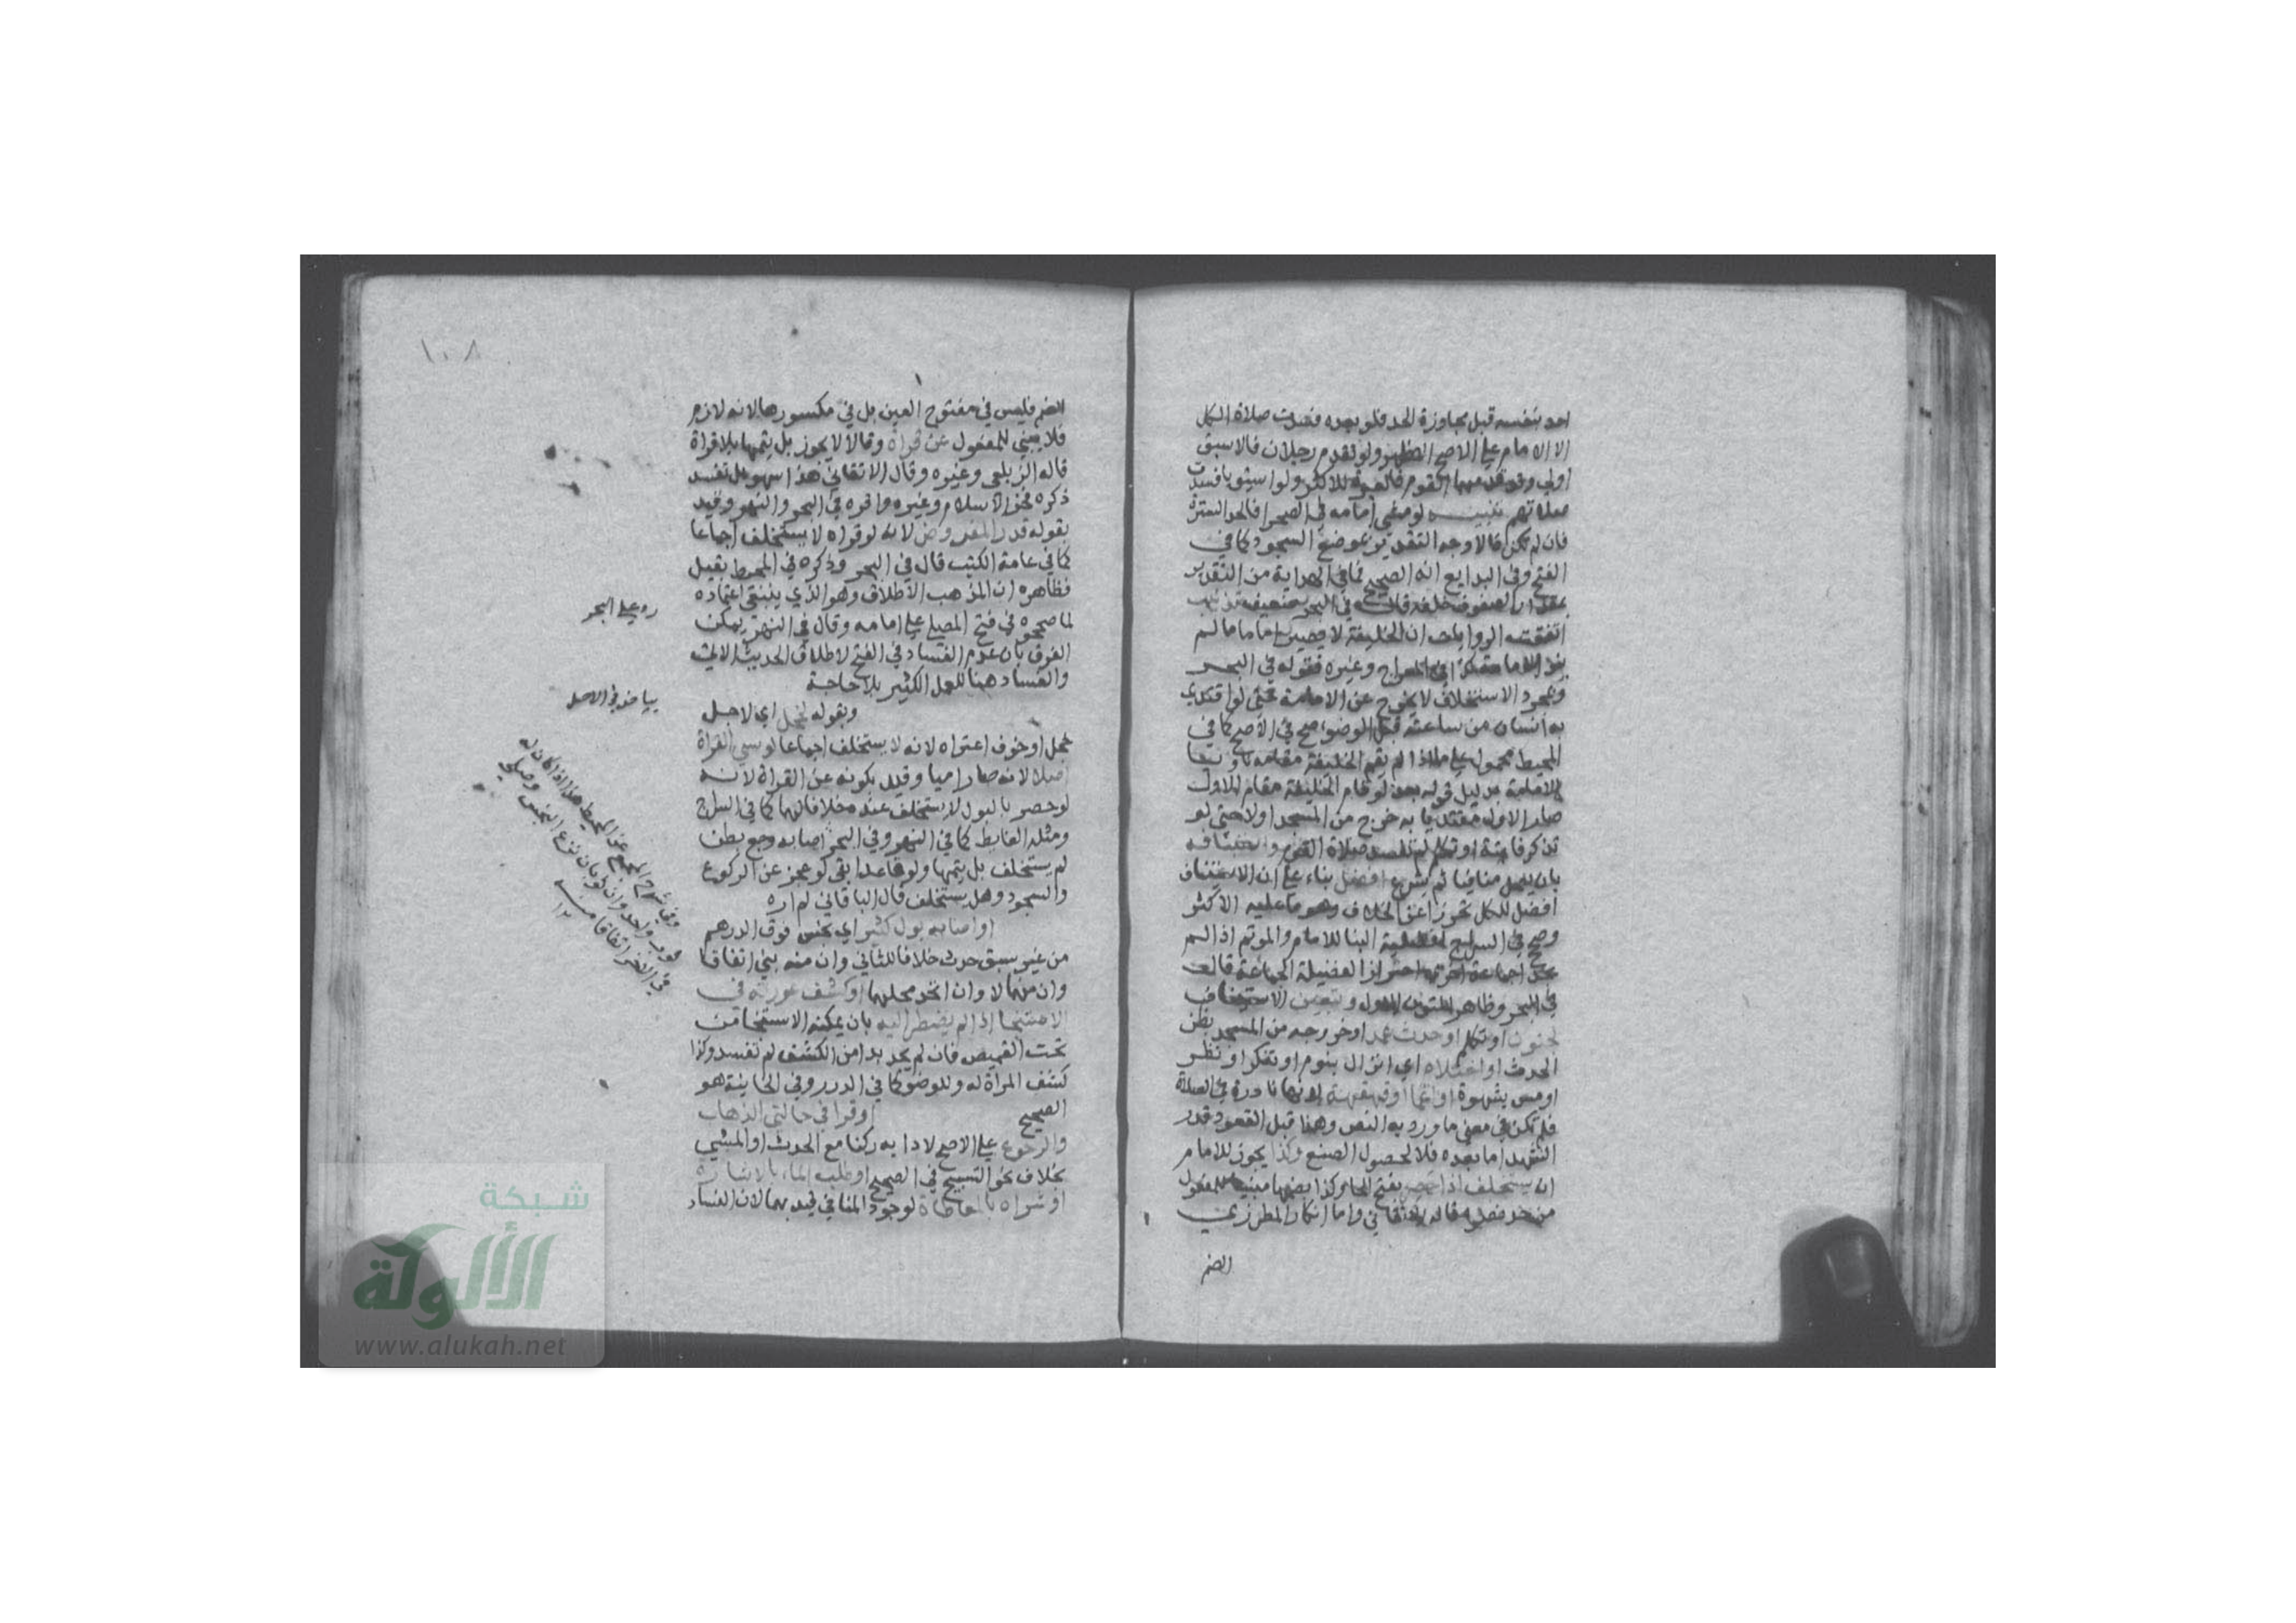 احد بنفسه قبل مجاوزة الحد فلو بعده فسدت صلاة الكل
الا الامام على الاصح الظهير ولو تقدم رجلان فالاسبق
اولى ولو قدمهما القوم فالعبرة للاكثر ولو استويا فسدت
صلاتهم تنبيه لو صلى امامه في الصحرا فالحد السترة
فان لم تكن فالاوجه التقدير بموضع السجود كما في
الفتح وفي البدايع انه الصحيح فما في الهداية من التقدير
بمقدار الصفوف خلفه قال في البحر ضعيف تذنيب
اتفقت الروايات ان الخليفة لا يصير اماما ما لم
ينو الامامة كذا في المعراج وغيره فقوله في البحر
وبمجرد الاستخلاف لا يخرج عن الامامة حتى لو اقتدى
به انسان من ساعته قبل الوضوء صح في الاصح كما في
المحيط محمول على ما اذا لم يقم الخليفة مقامه ناويا
للامامة بدليل قوله بعد لو قام الخليفة مقام الاول
صار الاول مقتديا به خرج من المسجد اولا حتى لو
تذكر فايتة او تكلم لم تفسد صلاة القوم واستينافه
بان يعمل منافيا ثم يشرع افضل بناء على ان الاستيناف
افضل للكل تحرزا عن الخلاف وهو ما عليه الاكثر
وصح في السراج افضلية البنا للامام والموتم اذا لم
يجد جماعة اخرى احترازا لفضيلة الجماعة قال
في البحر وظاهر المتون الاول ويتعين الاستيناف
لجنون او تكلم او حدث عمدا وخروجه من المسجد بظن
الحدث او احتلام اي انزال بنوم او تفكر او نظر
او مس بشهوة او اغما او قهقهة لانها نادرة في الصلاة
فلم تكن في معنى ما ورد به النص وهذا قبل القعود قدر
التشهد اما بعده فلا لحصول الصنع وكذا يجوز للامام
ان يستخلف اذا حصر بفتح الحا وكذا بضمها مبنيا للمفعول
من حد فعل قاله الاتقاني واما انكار المطرزي
الضم
١٠٨
الضم فليس في مفتوح العين بل في مكسورها لانه لازم
فلا يبنى للمفعول عن قراة وقالا لا يجوز بل يتمها بلا قراة
قاله الزيلعي وغيره وقال الاتقاني هذا سهو بل تفسد
ذكره فخر الاسلام وغيره واقره في البحر والنهر وقيد
بقوله قدر المفروض لانه لو قراه لا يستخلف اجماعا
كما في عامة الكتب قال في البحر وذكره في المحيط بقيل
فظاهره ان المذهب الاطلاق وهو الذي ينبغي اعتماده
لما صححوه في فتح المصلي على امامه وقال في النهر يمكن
الفرق بان عدم الفساد في الفتح لاطلاق الحديث الاتي
والفساد هنا للعمل الكثير بلا حاجة
وبقوله لخجل اي لاجل
خجل او خوف اعتراه لانه لا يستخلف اجماعا لو نسي القراة
اصلا لانه صار اميا وقيد بكونه عن القراة لانه
لو حصر بالبول لا يستخلف عنده خلافا لهما كما في السراج
ومثله الغايط كما في النهر وفي البحر اصابه وجع بطن
لم يستخلف بل يتمها ولو قاعدا بقي لو عجز عن الركوع
والسجود وهل يستخلف قال الباقاني لم اره
او اصابه بول كثير اي نجس فوق الدرهم
من غير سبق حدث خلافا للثاني وان منه بني اتفاقا
وان منهما لا وان اتحد محلهما او كشف عورته في
الاستنجا اذا لم يضطر اليه بان يمكنه الاستنجا من
تحت القميص فان لم يجد بدا من الكشف لم تفسد وكذا
كشف المراة له وللوضو كما في الدرر وفي الخانية هو
الصحيح او قرا في حالتي الذهاب
والرجوع على الاصح لاداىه ركنا مع الحدث او المشي
بخلاف نحو التسبيح في الصحيح او طلب الماء بالاشارة
او شراه بالمعاطاة لوجود المنافي قيد بهما لان الفساد
رد على البحر
بياض في الاصل
وفي شرح المجمع عن المحيط هذا اذا كان له
ثوب واحد وان ثوبان نزع النجس وصلى
في الاخر اتفاقا
١٢
شبكة
الألوكة
www.alukah.net